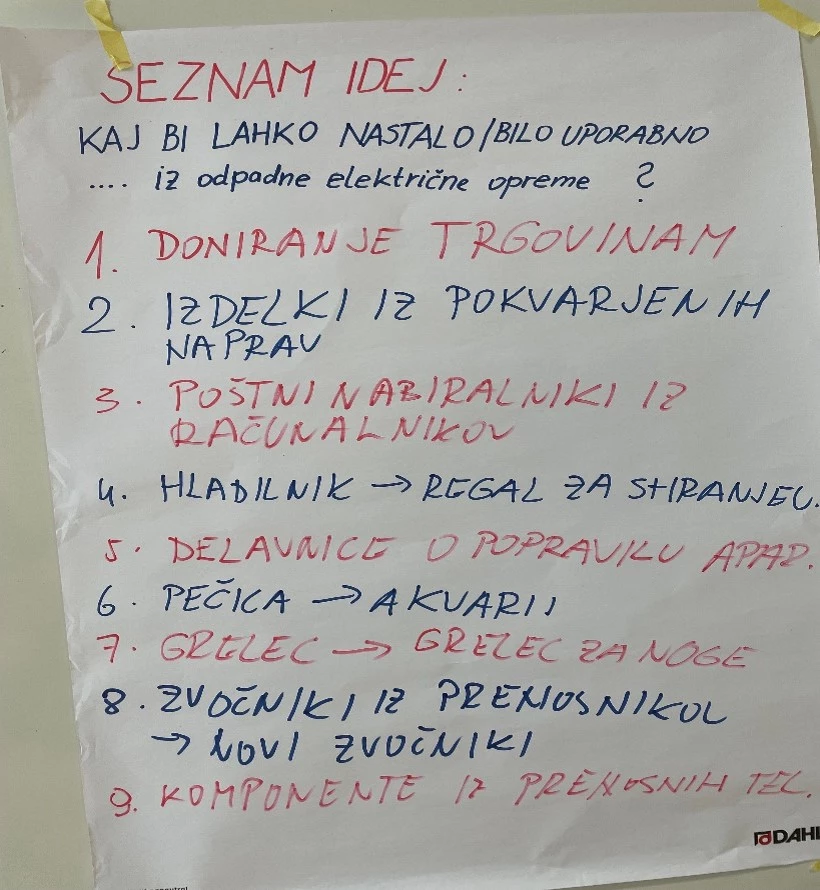 SEZNAM IDEJ:
KAJ BI LAHKO NASTALO/BILO UPORABNO
.... iz odpadne električne opreme ?
1. DONIRANJE TRGOVINAM
2. IZDELKI IZ POKVARJENIH
NAPRAV
3. POŠTNI NABIRALNIKI IZ
RAČUNALNIKOV
4. HLADILNIK → REGAL ZA SHRANJEV.
5. DELAVNICE O POPRAVILU APAR.
6. PEČICA → AKVARIJ
7. GRELEC → GRELEC ZA NOGE
8. ZVOČNIKI IZ PRENOSNIKOV
→ NOVI ZVOČNIKI
9. KOMPONENTE IZ PRENOSNIH TEL.
DAHL